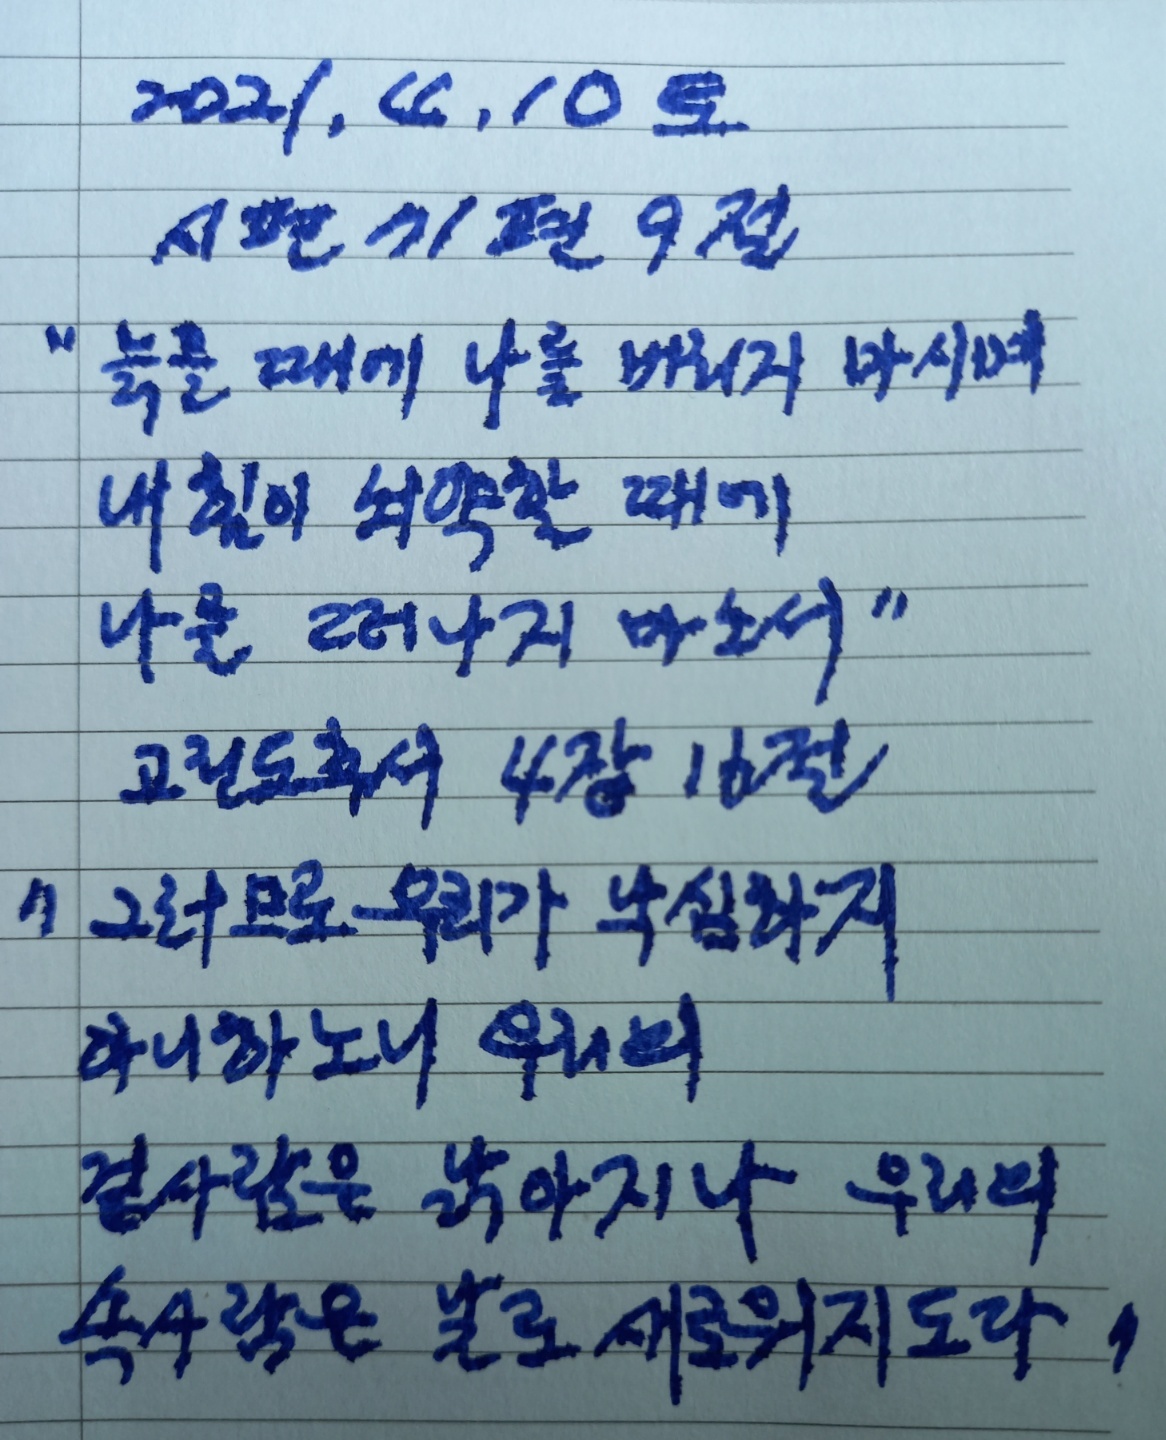 2021. 4. 10 토
시편 71편 9절
"늙을 때에 나를 버리지 마시며
내 힘이 쇠약할 때에
나를 떠나지 마소서"
고린도후서 4장 16절
"그러므로 우리가 낙심하지
아니하노니 우리의
겉사람은 낡아지나 우리의
속사람은 날로 새로워지도다"